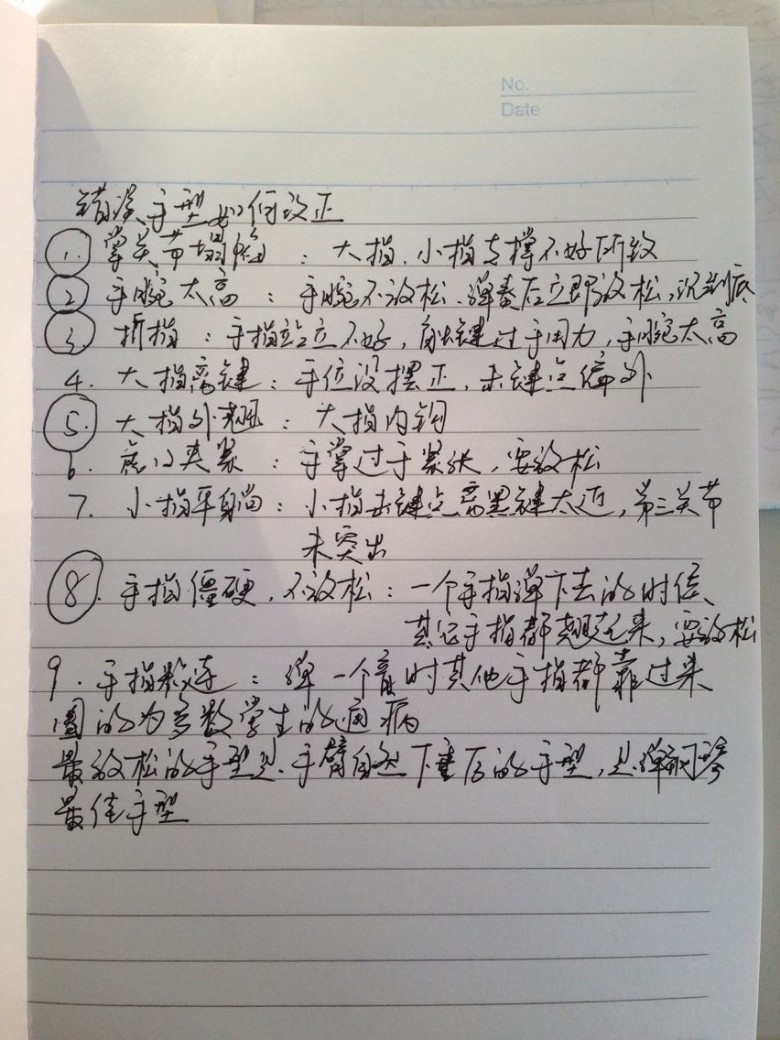 No.
Date
错误手型如何改正
①. 掌关节塌陷：大指、小指支撑不好所致
② 手腕太高：手腕不放松、弹奏后立即放松，沉到底
③ 折指：手指站立不好，触键过于用力，手腕太高
4. 大指离键：手位没摆正，击键点偏外
⑤. 大指外翘：大指内钩
6. 虎口夹紧：手掌过于紧张，要放松
7. 小指平躺：小指击键点离黑键太近，第三关节
未突出
⑧. 手指僵硬，不放松：一个手指弹下去的时候、
其它手指都翘起来，要放松
9. 手指粘连：弹一个音时其他手指都靠过来
圈的为多数学生的通病
最放松的手型是、手臂自然下垂后的手型，是弹钢琴
最佳手型